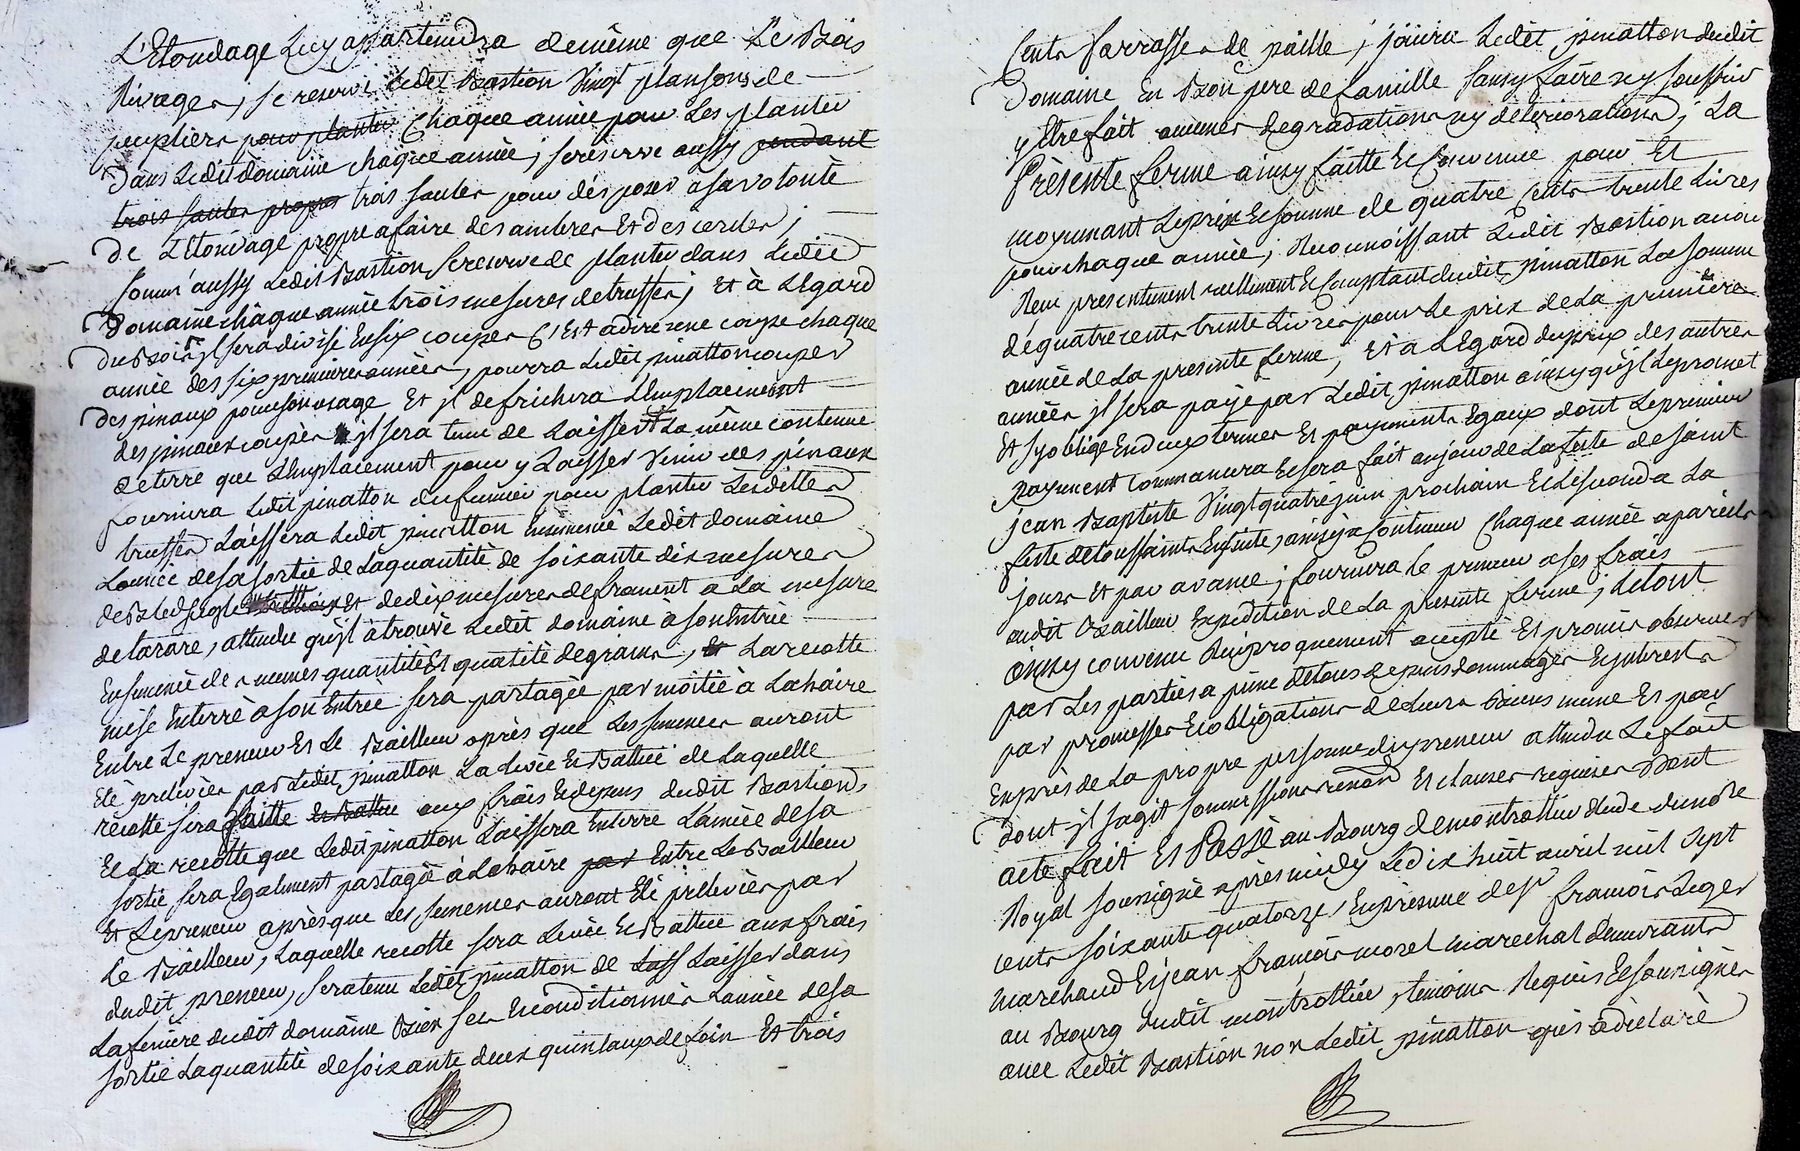 L'Etondage Luy apartiendra demême que Le Bois
Rivager, se reserve Ledet Bastion vingt plansons de
peupliers pour planter Chaque année pour Les planter
Dans Ledit domaine chaque année; sereserve aussy pendant
trois saules propres trois saules pour disposer àsavolonté
de L'Etonvage propre afaire des ambres Et des cercles;
Comm'aussy Ledit Bastion sereserve de planter dans Ledit
Domaine châque année trois mesures de truffes; Et à LEgard
Du Bois jlsera divisé Ensix coupes C'Est adire une coupe chaque
année des six premieres années, pourra Ledit pinatton couper
Des pinaux pour son usage Et jl defrichera L'Emplacement
des pinaux coupés jl sera tenu de Laisser La même contenue
de terre que L'Emplacement pour y Laisser venir des pinaux
fournira Ledit pinatton du fumier pour planter Lesdittes
truffes Laissera Ledit pinatton Ensemencé Ledit domaine
Lannée de sa sortie de Laquantité de soixante dix mesures
de Bled seigle Et de dix mesures de froment a La mesure
de tarare, attendu qu'jl à trouvé Ledit domaine à son Entrée
Ensemencé des memes quantités Et qualité de grains, Et La recolte
mise Enterre à son Entrée sera partagée par moitié à Lahaire
Entre Le preneur Et Le Bailleur après que Les semences auront
Eté prelevées par Ledit pinatton La Levée Et Battue de Laquelle
recolte sera faitte Et Battue aux frais Et depens dudit Bastion,
Et La recolte que Ledit pinatton Laissera Enterre L'année de sa
sortie sera Egalement partagée à Lahaire par Entre Le Bailleur
Et Lepreneur après que Les semences auront Eté prelevées par
Le Bailleur, Laquelle recolte sera Levée Et Battue aux frais
dudit preneur, sera tenu Ledit pinatton de Laiss Laisser dans
La feniere dudit domaine Bien sec Et conditionné Lannée de sa
sortie Laquantité de soixante deux quintaux de foin Et trois
Cents farrasses de paille; jouira Ledit pinatton dudit
Domaine En Bon pere de famille sans y faire ny souffrir
y Etre fait aucunes degradations ny déteriorations; La
Présente ferme ainsy faitte Et Convenue pour Et
moyennant Le prix Et somme de quatre Cents trente Livres
pour chaque année; Reconnoissant Ledit Bastion avoir
Reçu presentement reellement Et Comptant dudit pinatton La somme
de quatre cents trente Livres pour Le prix de La premiere
année de La presente ferme, Et à L'Egard du prix des autres
années jl sera payé par Ledit pinatton ainsy qu'jl Le promet
Et s'y oblige En deux termes Et payments Egaux dont Le premier
payment Commancera Et sera fait au jour de La feste de saint
jean Baptiste vingt quatre juin prochain Et Le second a La
feste de toussaints Ensuite, ainsy a Continuer Chaque année a pareils
jours Et par avance; fournira le preneur a ses frais
audit Bailleur Expedition de La presente ferme; Letout
ainsy convenu Reciproquement accepté Et promis observer
par Les parties a peine de tous depens dommages Et jnterests
par promesses Et obligations de Leurs Biens meme Et par
Exprès de La propre personne du preneur attendu Le fait
dont jl sagit soumissions renon Et clauses requises Dont
acte fait Et Passé au Bourg de montrottier Etude du notre
Royal soussigné après midy Le dix huit avril mil sept
cents soixante quatorze, En presence de sr françois Leger
marchand Et jean françois morel marechal demeurants
au Bourg dudit montrottier, temoins Requis Et soussignés
avec Ledit Bastion non Ledit pinatton qui à déclaré